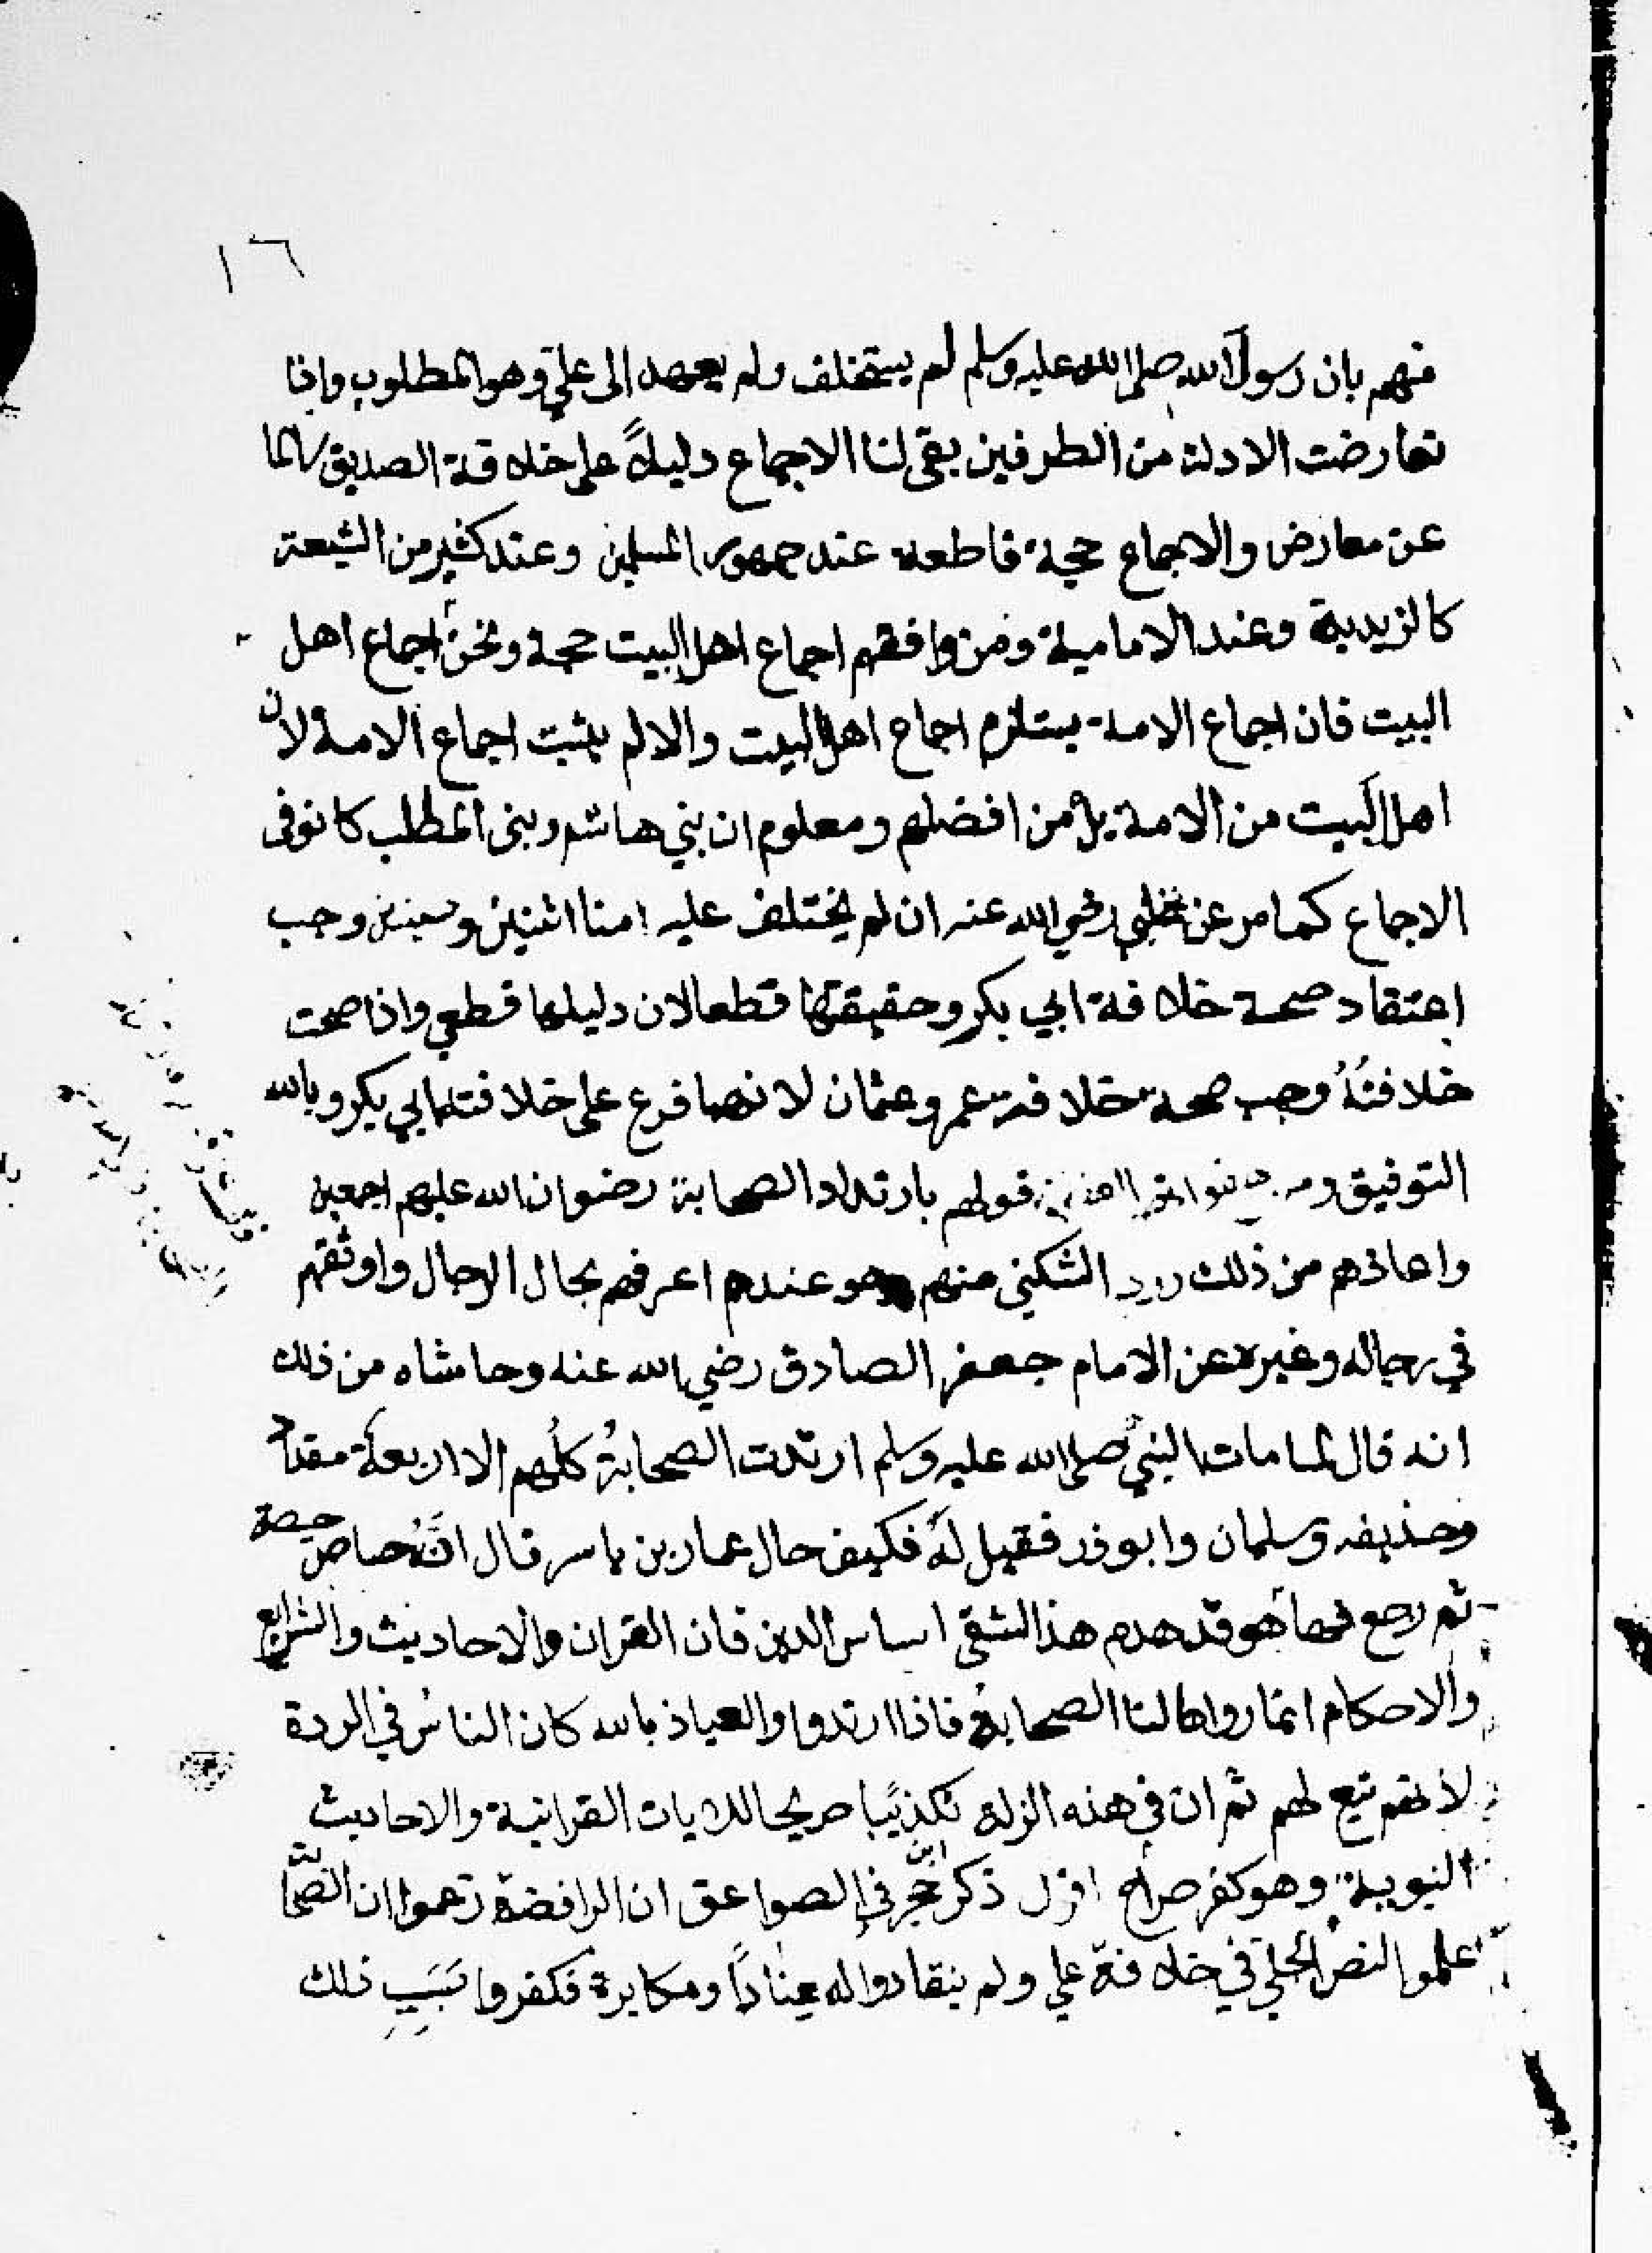 ١٦
منهم بان رسول الله صلى الله عليه وسلم لم يستخلف ولم يعهد الى علي وهو المطلوب واذا
تعارضت الادلة من الطرفين بقى لنا الاجماع دليلاً على خلافة الصديق سالما
عن معارض والاجماع حجة قاطعة عند جمهور المسلمين وعند كثير من الشيعة
كالزيدية وعند الامامية ومن وافقهم اجماع اهل البيت حجة ونحن اجماع اهل
البيت فان اجماع الامة يستلزم اجماع اهل البيت والا لم يثبت اجماع الامة لان
اهل البيت من الامة بل من افضلهم ومعلوم ان بني هاشم وبنى المطلب كانوفى
الاجماع كما مر عن رضي الله عنه ان لم يختلف عليه منا اثنين وحينئذ وجب
اعتقاد صحة خلافة ابي بكر وحقيقتها قطعا لان دليلها قطعي واذا صحت
خلافتُهُ وجب صحة خلافة عمر وعثمان لانهما فرع على خلافة ابي بكر وبالله
التوفيق قولهم بارتداد الصحابة رضوان الله عليهم اجمعين
واعاذهم من ذلك منهم وهو عندهم اعرفهم بحال الرجال واوثقهم
في رجاله وغيره عن الامام جعفر الصادق رضي الله عنه وحاشاه من ذلك
انه قال لما مات النبيُّ صلى الله عليه وسلم ارتدت الصحابةُ كلُهم الا اربعة مقداد
وحذيفه وسلمان وابو ذر فقيل لَهُ فكيف حال عمار بن ياسر قال انَّهُ حاص حيصة
ثم رجع فها هو قد هدم هذا الشقى اساس الدين فان القران والاحاديث والشرايع
والاحكام انما رواها لنا الصحابةُ فاذا ارتدوا والعياذ بالله كان الناسُ في الردة
لانهم تبع لهم ثم ان في هذه الزلة تكذيبًا صريحا للايات القرانية والاحاديث
النبوية وهو كفر صراح ذكر ابن حجر في الصواعق ان الرافضة زعموا ان الصحابة
علموا النص الجلي في خلافة علي ولم ينقادوا له عِنادًا ومكابرة فكفروا بسَبَبِ ذلك